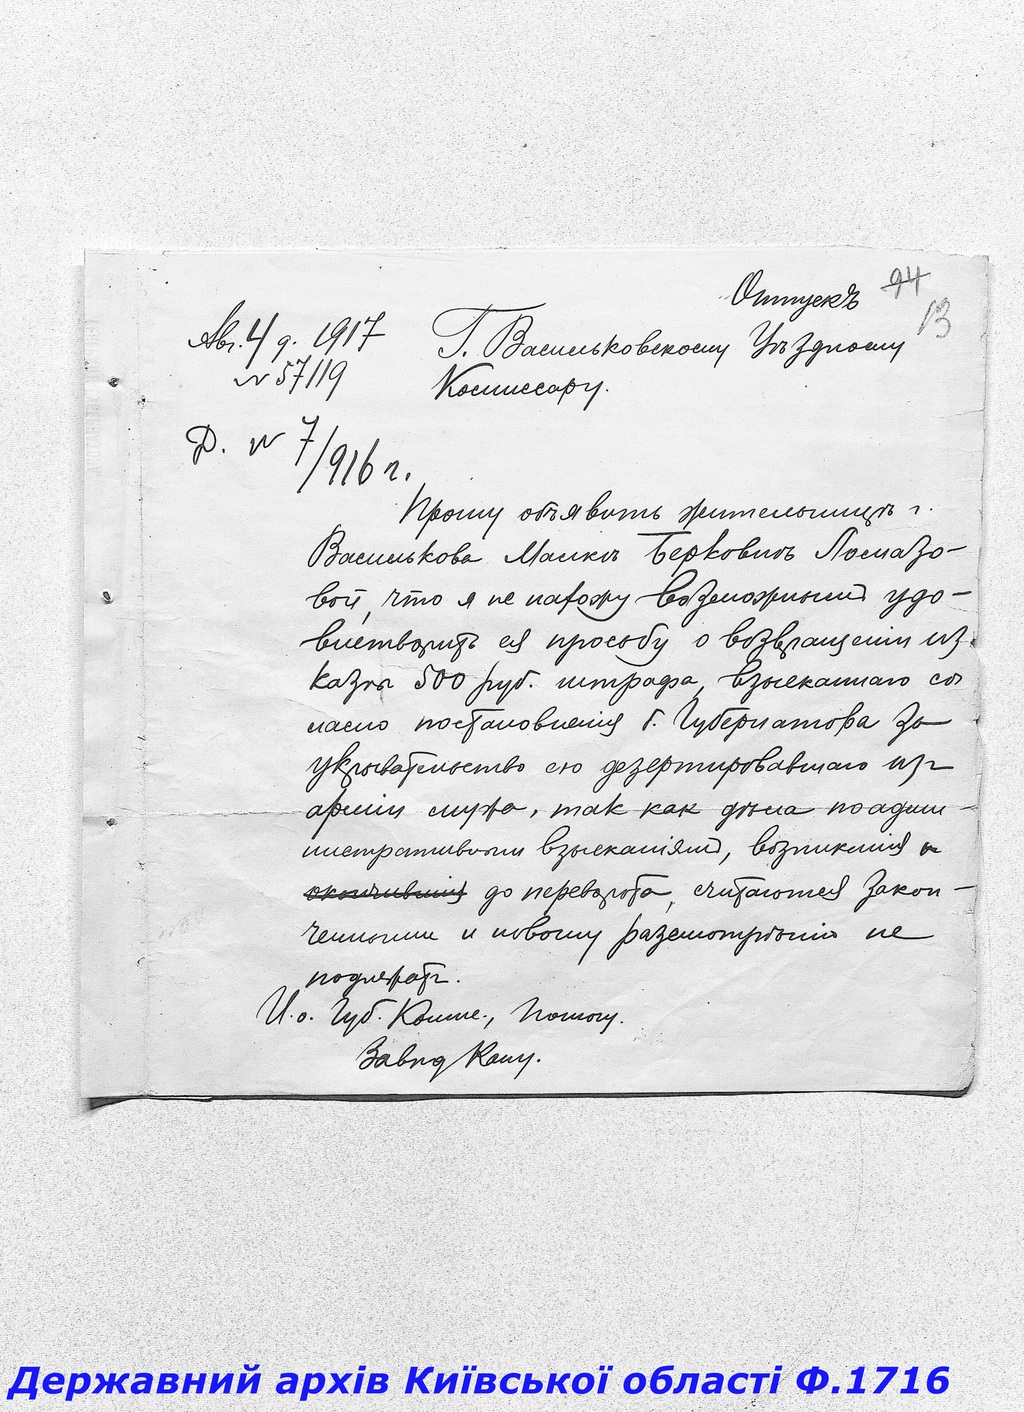 Отпускъ 94
13
Авг. 4 д. 1917
Г. Васильковскому Уѣздному
№ 57119
Комиссару.
Д. № 7/916 г.
Прошу объявить жительницѣ г.
Василькова Малкѣ Берковнѣ Помазо-
вой, что я не нахожу возможным удо-
влетворить ея просьбу о возвращеніи из
казны 500 руб. штрафа, взысканнаго со
гласно постановленія Г. Губернатора за
укрывательство ею дезертировавшаго изъ
арміи мужа, так как дѣла по адми-
нистративным взысканіям, возникшія и
окончившія до переворота, считаются закон-
ченными и новому разсмотрѣнію не
подлежатъ.
И. о. Губ. Комис.,
Завѣд
Державний архів Київської області Ф.1716